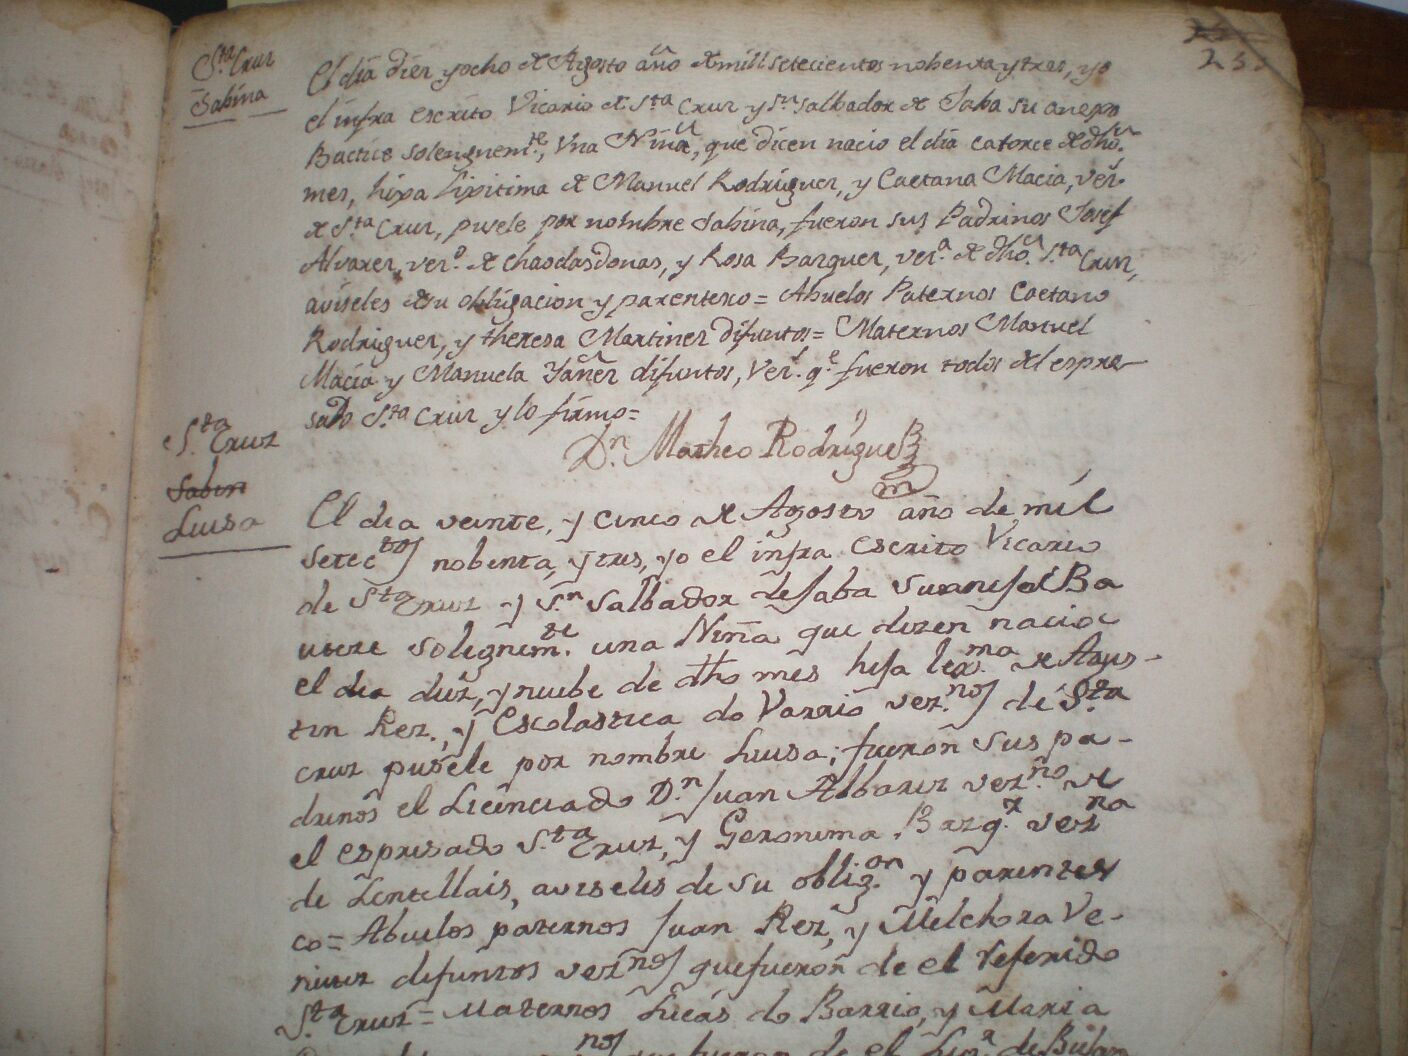 S.ta Cruz
Sabina
El dia diez yocho de Agosto año de mill setecientos nobenta y tres, yo
el infra escrito Vicario de S.ta Cruz y S.n Salbador de Saba su anexo
Bautice solegnem.te, Vna Niña, que dicen nacio el dia catorce de dho.
mes, hixa lixitima de Manuel Rodriguez, y Caetana Macia, vez.s
de S.ta Cruz, pusele por nombre Sabina, fueron sus Padrinos Josef
Alvarez, vez.o de Chaodasdonas, y Rosa Bazquez, vez.a de dho. S.ta Cruz,
aviseles de su obligacion y parentezco = Abuelos Paternos Caetano
Rodriguez, y Theresa Martinez difuntos = Maternos Manuel
Macia y Manuela Yañez difuntos, Vez.s q.e fueron todos del espre
sado S.ta Cruz y lo firmo =
D.n Matheo Rodriguez
S.ta Cruz
Sabin
Luisa
El dia veinte, y cinco de Agosto año de mil
setec.tos nobenta, y tres, yo el infra escrito Vicario
de S.ta Cruz y S.n Salbador de Saba su anejo Ba
utize solegnem.te una Niña que dizen nacio
el dia diez, y nuebe de dho mes hija lex.ma de Agus-
tin Rez., y Escolastica do Varrio vez.nos de S.ta
Cruz pusele por nombre Luisa; fueron sus pa-
drinos el Licenciado D.n Juan Albarez vez.no de
el espresado S.ta Cruz, y Geronima Bazq.z vez.na
de Lentellais, aviseles de su oblig.on y parentes
co = Abuelos paternos Juan Rez, y Melchora Ve-
niuez difuntos vez.nos que fueron de el referido
S.ta Cruz = Maternos Lucas do Barrio, y Maria
nos que fueron de el